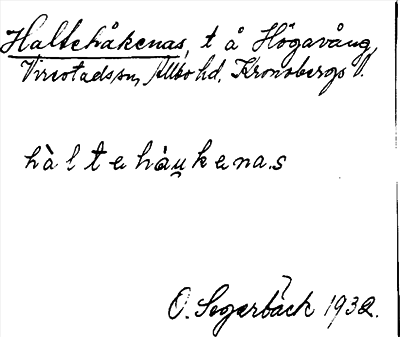 Haltehåkenas, t å Högavång,
Virestads sn, Allbo hd, Kronobergs l.
hàltehàu̯kena.s
O. Segerbäck 1932.